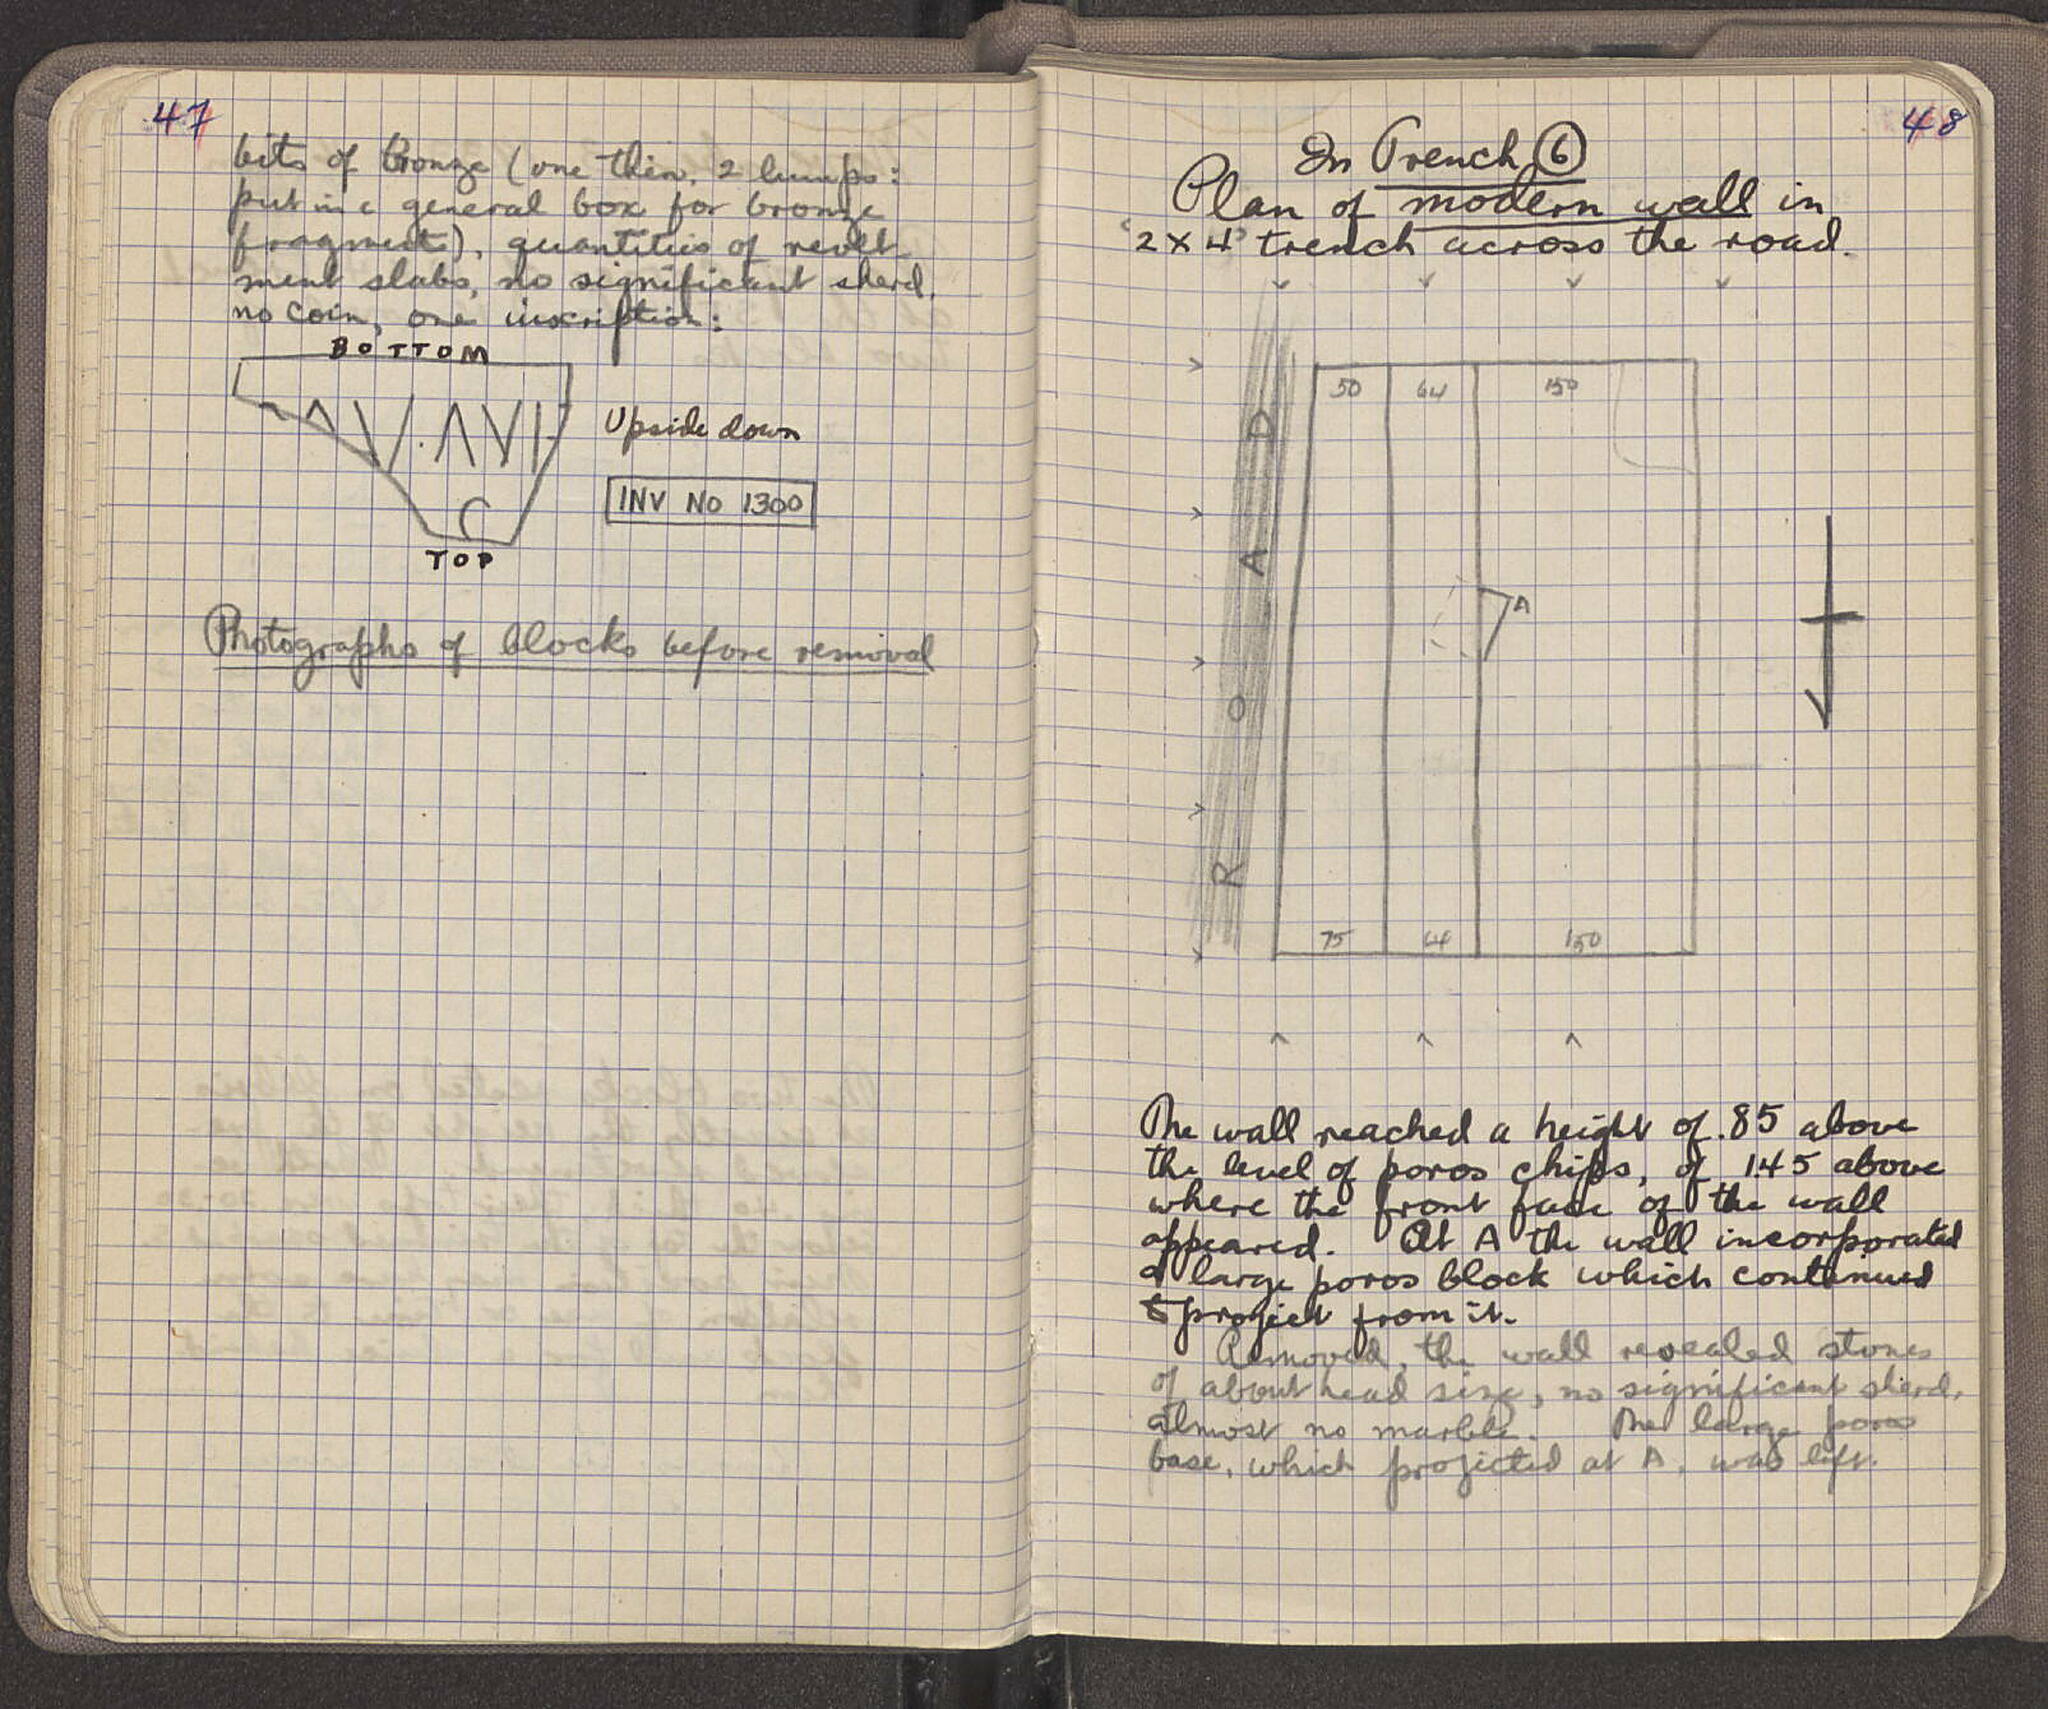 47
bits of Bronze (one thin, 2 lumps:
put in c general box for bronze
fragments), quantities of revet
ment slabs, no significant sherd,
no coin, one inscription:
BOTTOM
Upside down
INV NO 1300
TOP
Photographs of blocks before removal
48
In Trench 6
Plan of modern wall in
'2 x 4' trench across the road.
50 64 150
ROAD
A
75 64 150
The wall reached a height of .85 above
the level of poros chips, of 1.45 above
where the front face of the wall
appeared. At A the wall incorporated
a large poros block which continued
to project from it.
Removed, the wall revealed stones
of about head size, no significant sherd,
almost no marble. The large poros
base, which projected at A, was left.